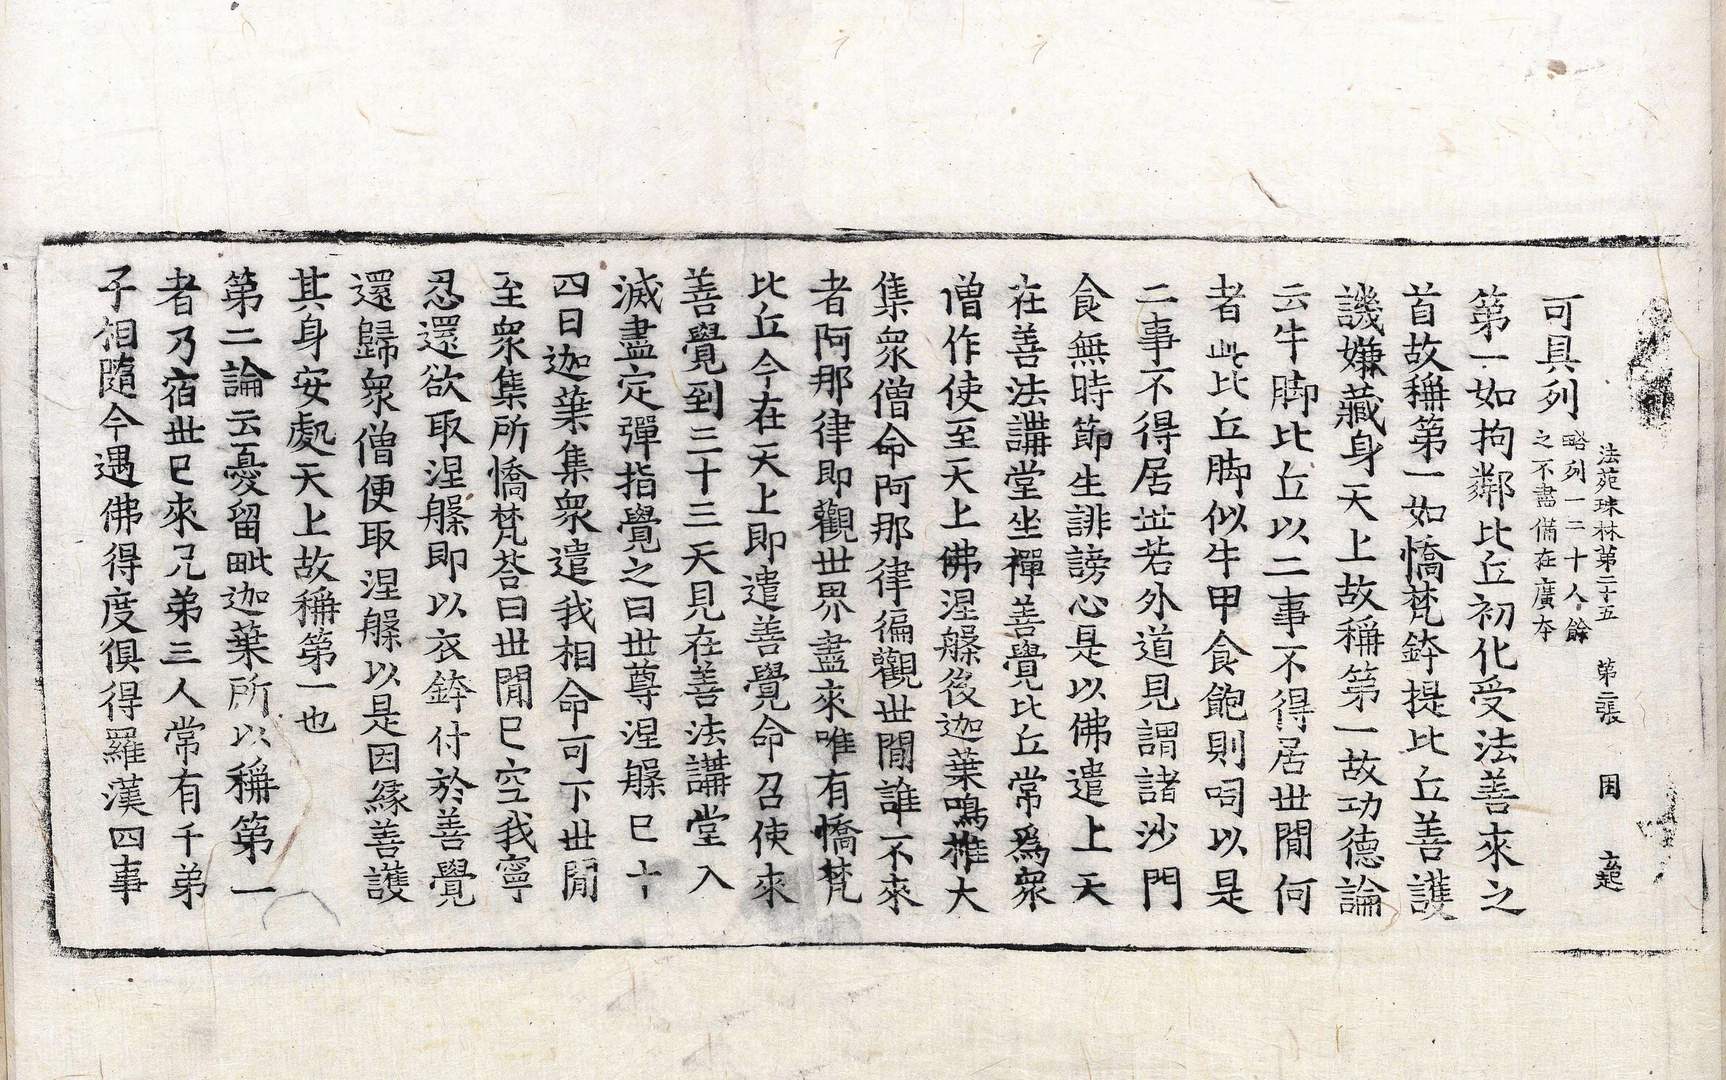 法苑珠林第二十五　第二張　因　玄起
可具列略列一二十人餘
之不盡備在廣本
第一如拘鄰比丘初化受法善來之
首故稱第一如憍梵鉢提比丘善護
譏嫌藏身天上故稱第一故功德論
云牛脚比丘以二事不得居世閒何
者此比丘脚似牛甲食飽則呞以是
二事不得居世若外道見謂諸沙門
食無時節生誹謗心是以佛遣上天
在善法講堂坐禪善覺比丘常爲衆
僧作使至天上佛涅槃後迦葉鳴椎大
集衆僧命阿那律徧觀世閒誰不來
者阿那律即觀世界盡來唯有憍梵
比丘今在天上即遣善覺命召使來
善覺到三十三天見在善法講堂入
滅盡定彈指覺之曰世尊涅槃已十
四日迦葉集衆遣我相命可下世閒
至衆集所憍梵荅曰世閒已空我寧
忍還欲取涅槃即以衣鉢付於善覺
還歸衆僧便取涅槃以是因緣善護
其身安處天上故稱第一也
第二論云憂留毗迦葉所以稱第一
者乃宿世已來兄弟三人常有千弟
子相隨今遇佛得度俱得羅漢四事